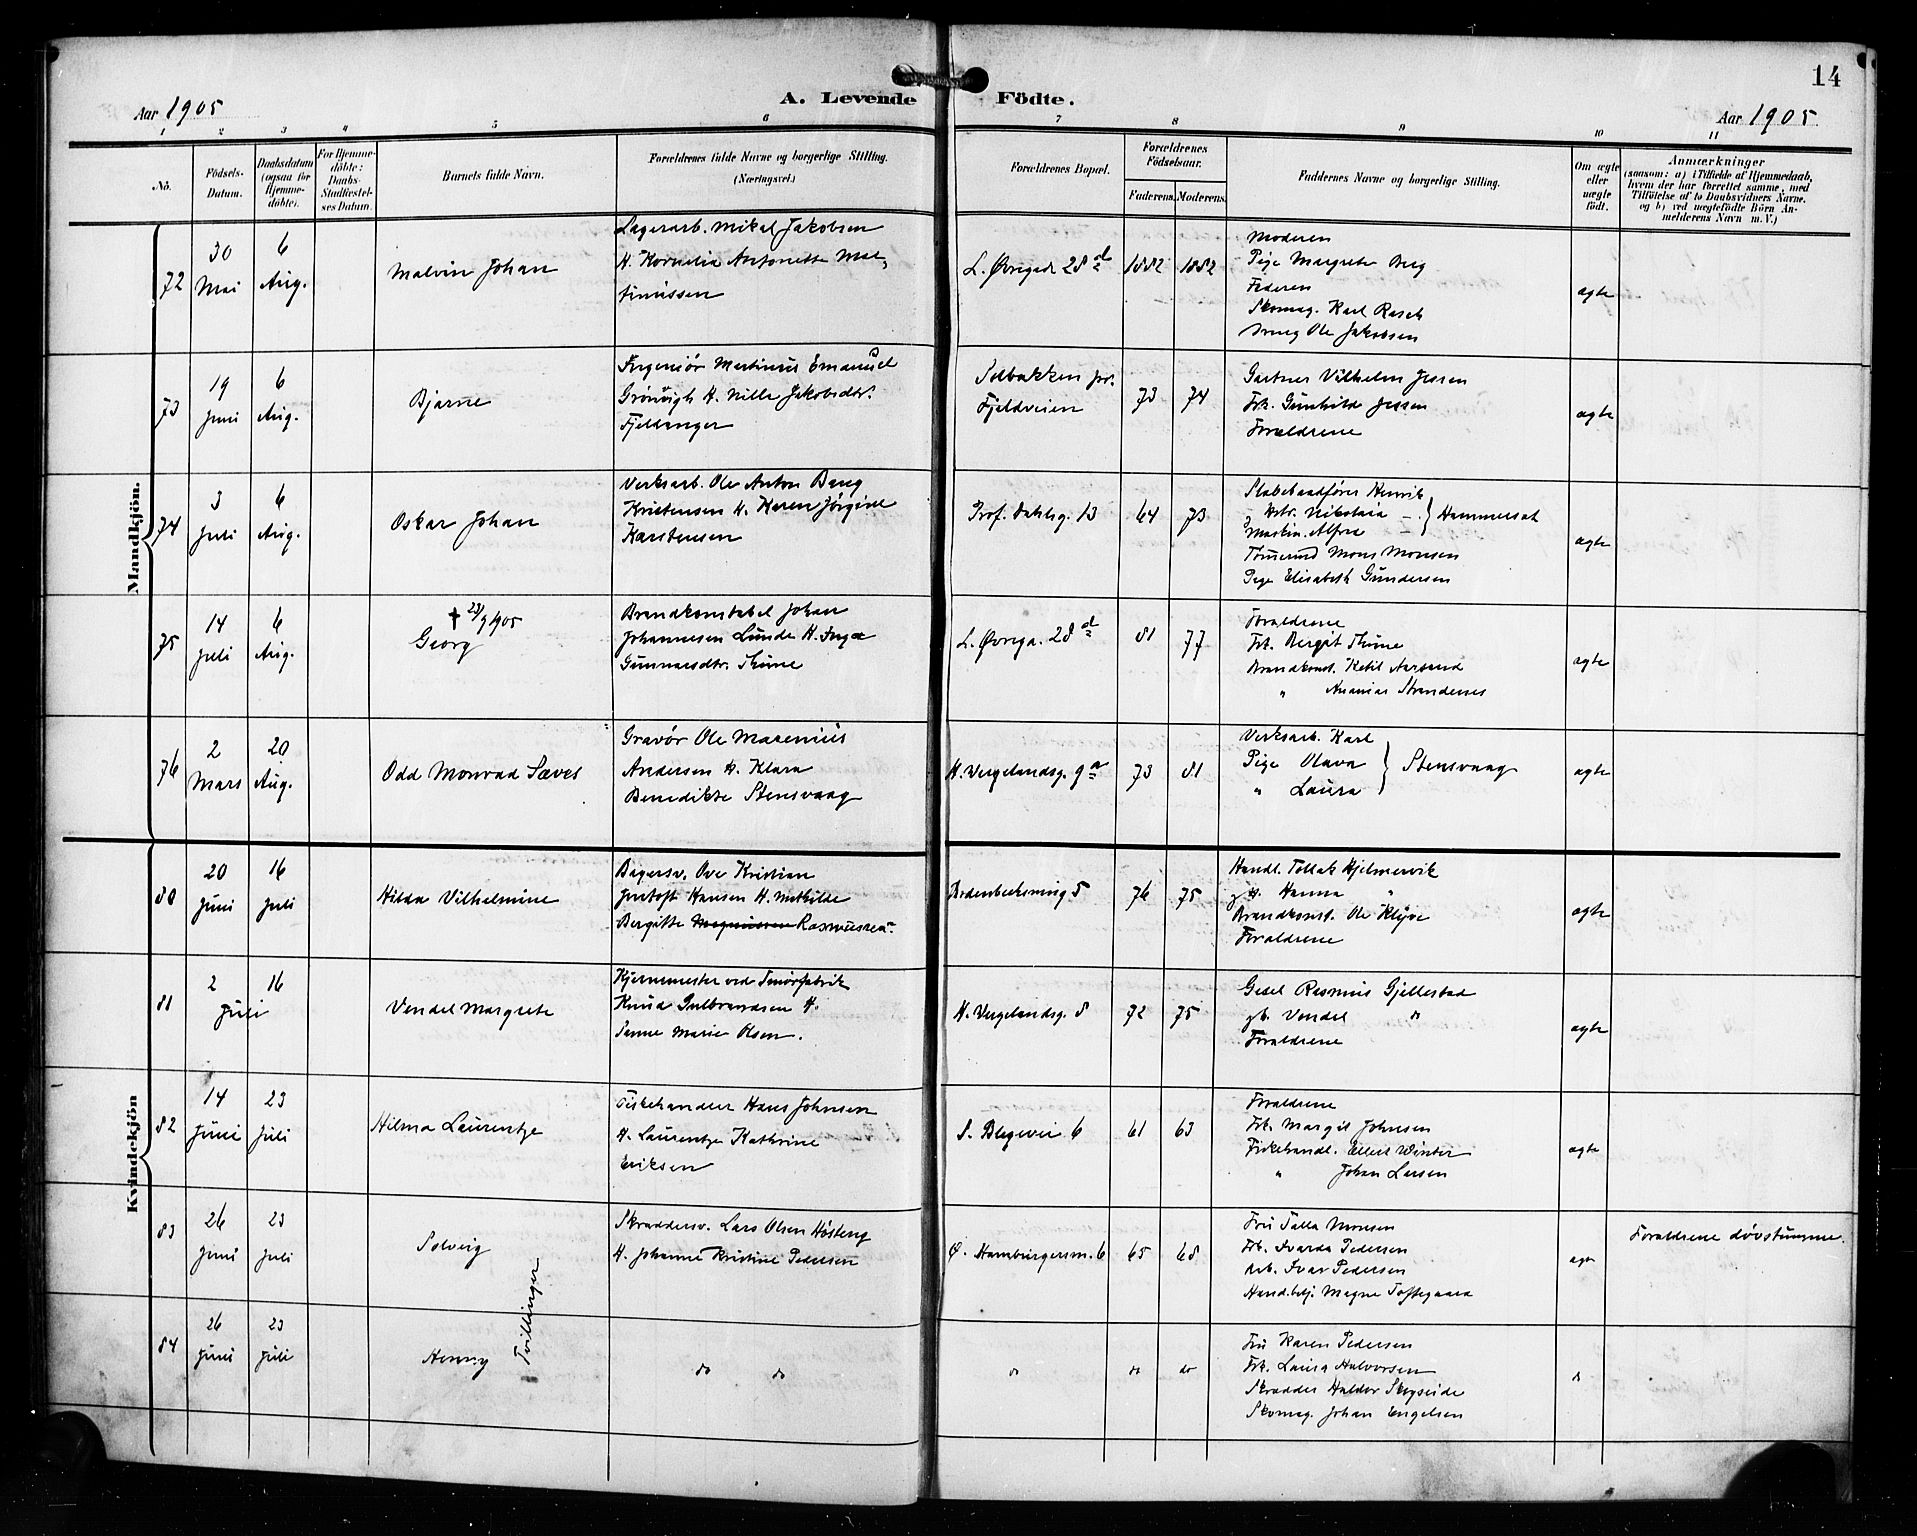 14
Aar 1905
A. Levende Födte.
Aar 1905.
1 2 3 4 5 6 7 8 9 10 11
No.
Födsels-
Datum.
Daabsdatum
(ogsaa for
Hjemme-
döbte).
For Hjemme-
döbte:
Daabs-
Stadfæstel-
ses Datum.
Barnets fulde Navn.
Forældrenes fulde Navne og borgerlige Stilling.
(Næringsvei.)
Forældrenes Bopæl.
Forældrenes
Födselsaar.
Faderens.
Moderens.
Faddernes Navne og borgerlige Stilling.
Om ægte
eller
uægte
födt.
Anmærkninger
(saasom: a) i Tilfælde af Hjemmedaab,
hvem der har forrettet samme, med
Tilföielse af to Daabsvidners Navne,
og b) ved uægtefödte Börn An-
melderens Navn m. V.)
Mandkjön.
72
30
Mai
6
Aug.
Malvin Johan
Lagerarb. Mikal Jakobsen
H. Kornelia Antonette Mar-
tinussen
L. Øvregade 28 d
1882
1882
Moderen
Pige Margrete Berg
Faderen
Skomag. Karl Rasch
Smeg Ole Jakobsen
ægte
73
19
Juni
6
Aug.
Bjarne
Ingeniør Martinus Emanuel
Grönvigh H. Nille Jakobsdtr.
Fjeldanger
Solbakken pr.
Fjeldveien
73
74
Gartner Vilhelm Jessen
Frk. Gunhild Jessen
Forældrene
ægte
74
3
Juli
6
Aug.
Oskar Johan
Verksarb. Ole Anton Bang
Kristensen H. Karen Jørgine
Karstensen
Prof. Dahlsg. 13
64
73
Henrik
Nikolaia
Maskin. Alfred
Hammersat
Tømmermd Mons Monsen
Pige Elisabeth Gundersen
ægte
75
14
Juli
6
Aug.
† 23/9 1905
Georg
Brandkonstabel Johan
Johannesen Lunde H. Inga
Gunnarsdtr. Thime
L. Øvrega. 28 d
81
77
Forældrene
Frk. Bergit Thime
Brandkonst. Ketil Aarsand
" Ananias Strandenes
ægte
76
2
Mars
20
Aug.
Odd Monrad Sæves
Gravør Ole Marenius
Andersen H. Klara
Benedikte Stensvaag
H. Vergelandsg. 9 a
73
81
Verksarb. Karl
Pige Olava
" Laura
Stensvaag
ægte
Kvindekjön
80
20
Juni
16
Juli
Hilda Vilhelmine
Bagersv. Ove Kristian
Hansen H. Mathilde
Bergitte Rasmussen
5
76
75
Handl. Tollak Hjelmervik
gH. Hanna "
Brandkonst. Ole Kløve
Forældrene
ægte
81
2
16
Juli
Vendel Margrete
Kjernemester ved Smörfabrik
Knud Gulbrandsen H.
Sanne Marie Olsen.
H. Vergelandsg. 8
72
75
Gesel Rasmus Gjellestad
gh. Vendel do
Forældrene
ægte
82
14
Juni
23
Juli
Hilma Laurentze
Fiskehandler Hans Johnsen
H. Laurentze Kathrine
Eriksen
S. Blegevei 6
61
63
Forældrene
Frk. Margit Johnsen
Fiskehandl. Ellert Winter
" Johan Larsen
ægte
83
26
Juni
23
Juli
Solveig
Skrædersv. Lars Olsen Høsteng
H. Johanne Kristine Pedersen
Ø. Hamburgersm. 6
65
68
Fru Talla Monsen
Frk. Ivarda Pedersen
Arb. Ivar Pedersen
Handl.betj. Magne Toftegaard
ægte
Forældrene døvstumme.
Tvillinger
84
26
Juni
23
Juli
Henny
do do
do
do
do
Fru Karen Pedersen
Frk. Laura Halvorsen
Skrædder Haldor Skogseide
Skomag. Johan Engelsen
do